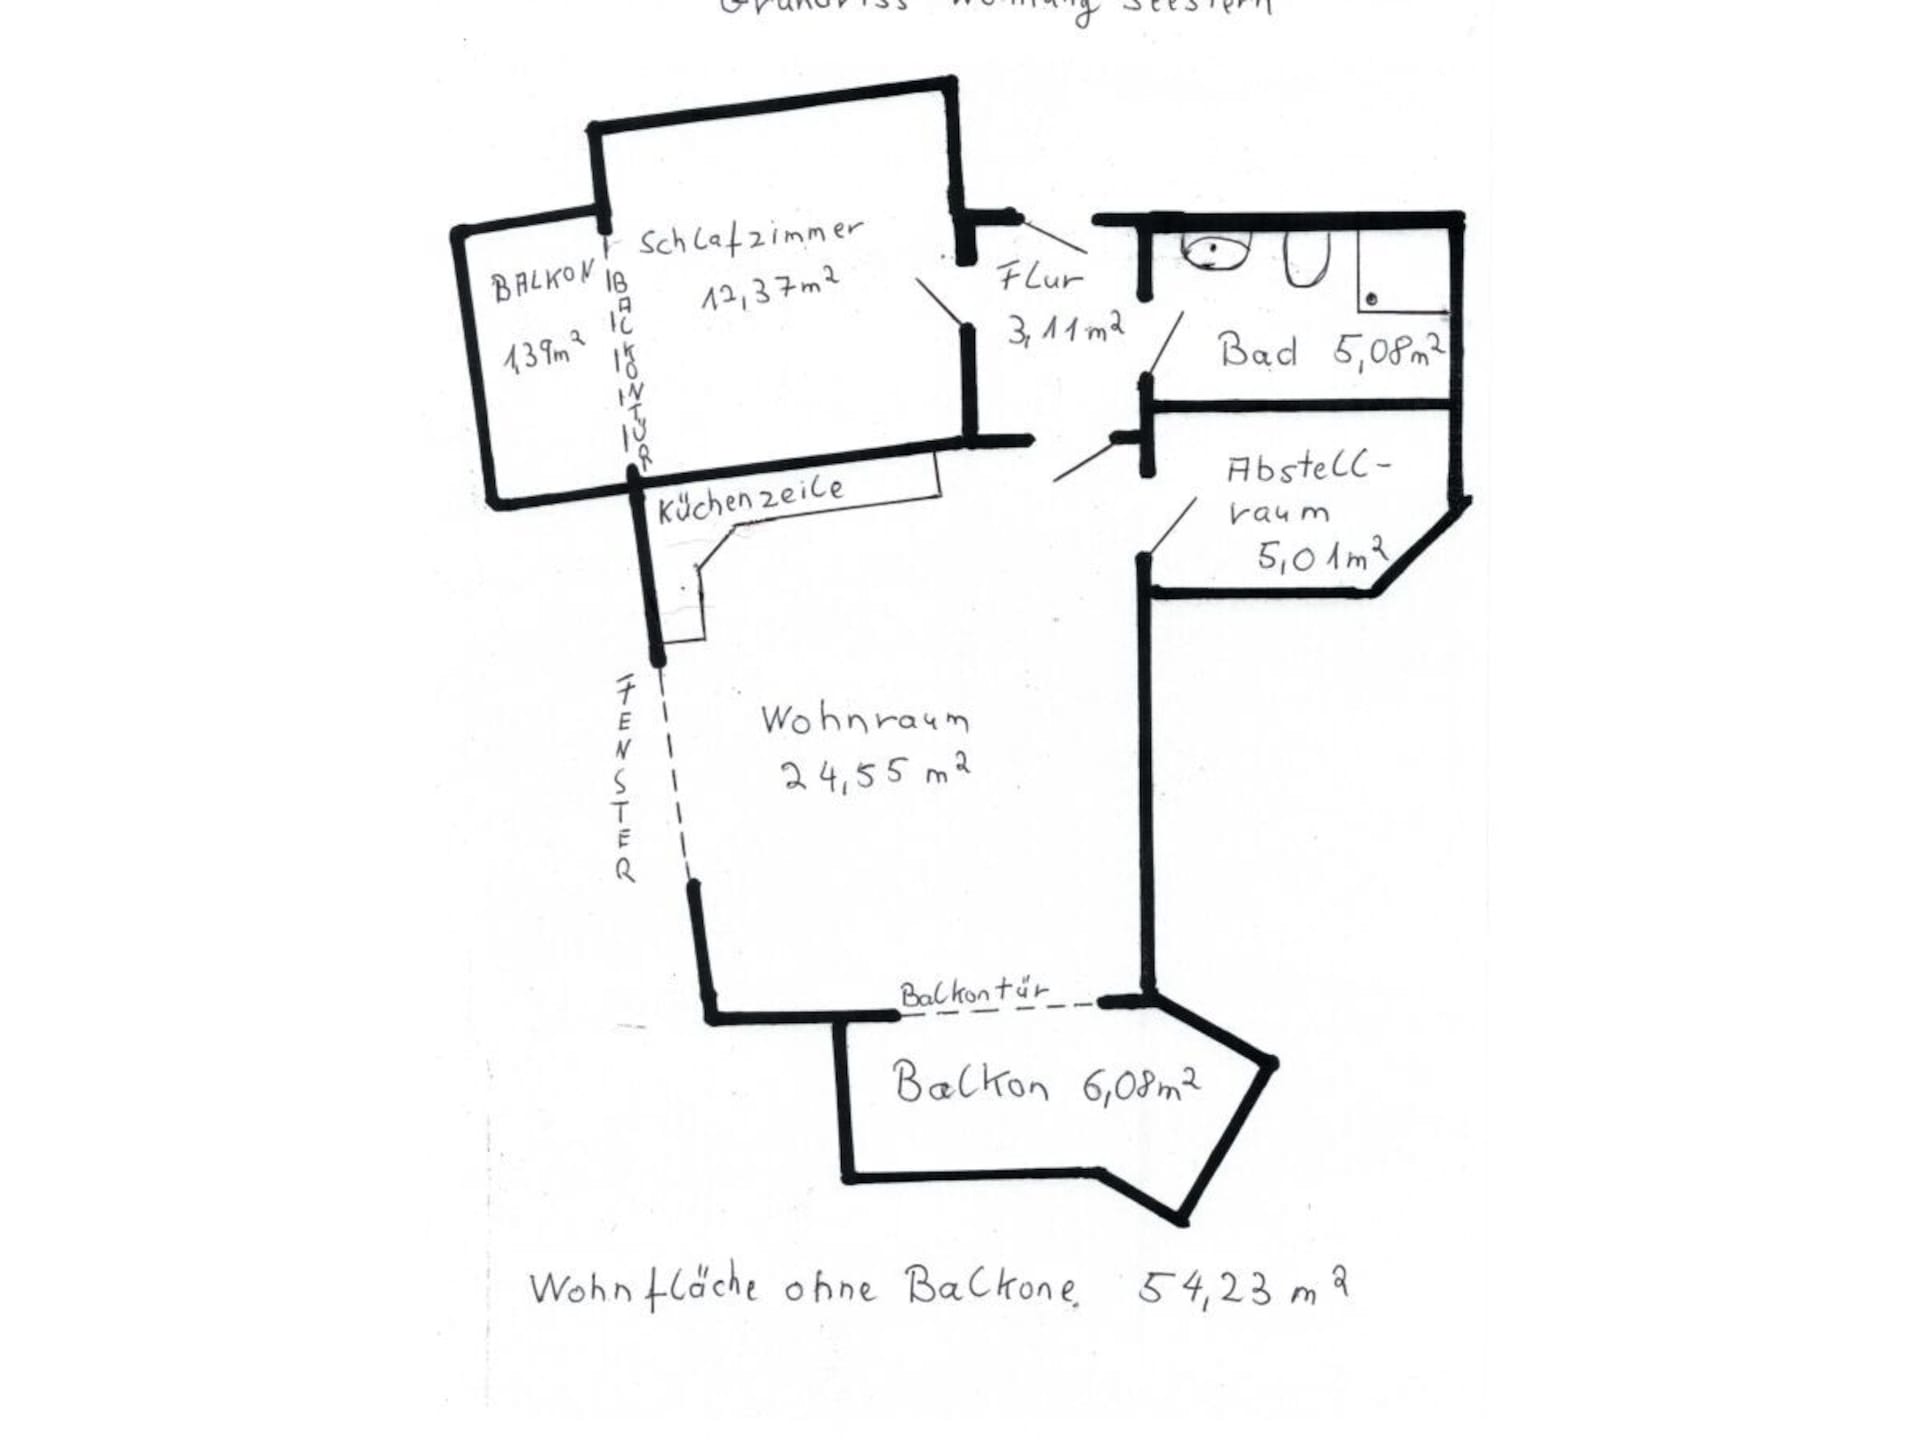 Grundriss Wohnung Seestern
Schlafzimmer
12,37m²
BALKON
1,39m²
BALKONTÜR
Flur
3,11m²
Bad 5,08m²
Küchenzeile
Abstell-
raum
5,01m²
FENSTER
Wohnraum
24,55 m²
Balkontür
Balkon 6,08m²
Wohnfläche ohne Balkone. 54,23 m²